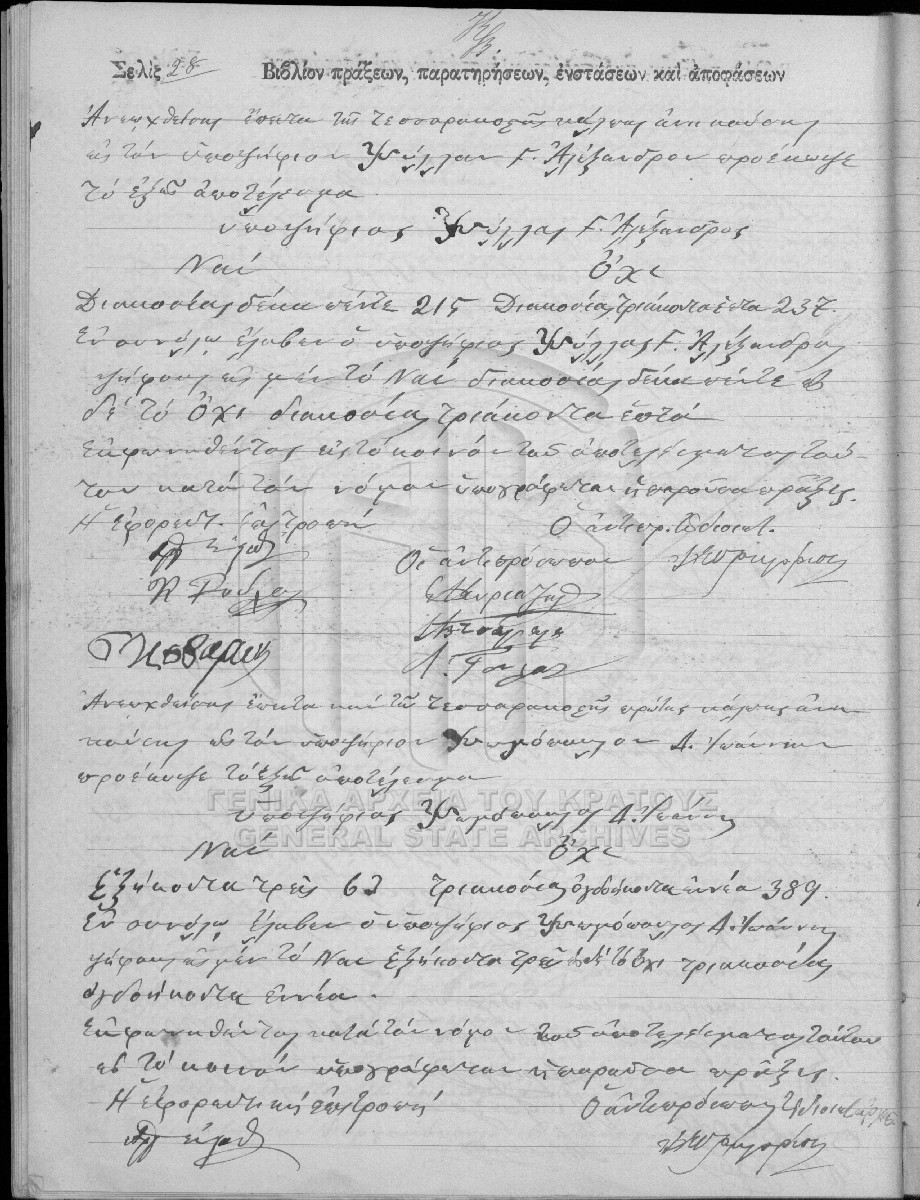 Σελὶς 28 Βιβλίον πράξεων, παρατηρήσεων, ἐνστάσεων καὶ ἀποφάσεων
Ἀνοιχθείσης ἔπειτα τῆς τεσσαρακοστῆς κάλπης ἀνηκούσης
εἰς τὸν ὑποψήφιον Ψύλλαν Γ. Ἀλέξανδρον προέκυψε
τὸ ἑξῆς ἀποτέλεσμα
ὑποψήφιος Ψύλλας Γ. Ἀλέξανδρος
Ναί Ὄχι
Διακοσίας δέκα πέντε 215 Διακοσίας τριάκοντα ἑπτὰ 237.
Ἐν συνόλῳ ἔλαβεν ὁ ὑποψήφιος Ψύλλας Γ. Ἀλέξανδρος
ψήφους εἰς μὲν τὸ Ναί διακοσίας δέκα πέντε εἰς
δὲ τὸ Ὄχι διακοσίας τριάκοντα ἑπτά
Ἐκφωνηθέντος εἰς τὸ κοινὸν τοῦ ἀποτελέσματος τού-
του κατὰ τὸν νόμον ὑπογράφεται ἡ παροῦσα πρᾶξις.
Ἡ Ἐφορευτ. Ἐπιτροπή Ὁ ἀντιπρ. τ. Διοικητ.
Οἱ ἀντιπρόσωποι
Ἀνοιχθείσης ἔπειτα καὶ τῆς τεσσαρακοστῆς πρώτης κάλπης ἀνη-
κούσης εἰς τὸν ὑποψήφιον Δ. Ἰωάννην
προέκυψε τὸ ἑξῆς ἀποτέλεσμα
ΓΕΝΙΚΑ ΑΡΧΕΙΑ ΤΟΥ ΚΡΑΤΟΥΣ
ὑποψήφιος Δ. Ἰωάννης
GENERAL STATE ARCHIVES
Ναί Ὄχι
Ἑξήκοντα τρεῖς 63 τριακοσίας ὀγδοήκοντα ἐννέα 389.
Ἐν συνόλῳ ἔλαβεν ὁ ὑποψήφιος Δ. Ἰωάννης
ψήφους εἰς μὲν τὸ Ναί ἑξήκοντα τρεῖς εἰς δὲ τὸ Ὄχι τριακοσίας
ὀγδοήκοντα ἐννέα.
Ἐκφωνηθέντος κατὰ τὸν νόμον τοῦ ἀποτελέσματος τούτου
εἰς τὸ κοινὸν ὑπογράφεται ἡ παροῦσα πρᾶξις.
Ἡ ἐφορευτική ἐπιτροπή Ὁ ἀντιπρόσωπος τ. Διοικητ.